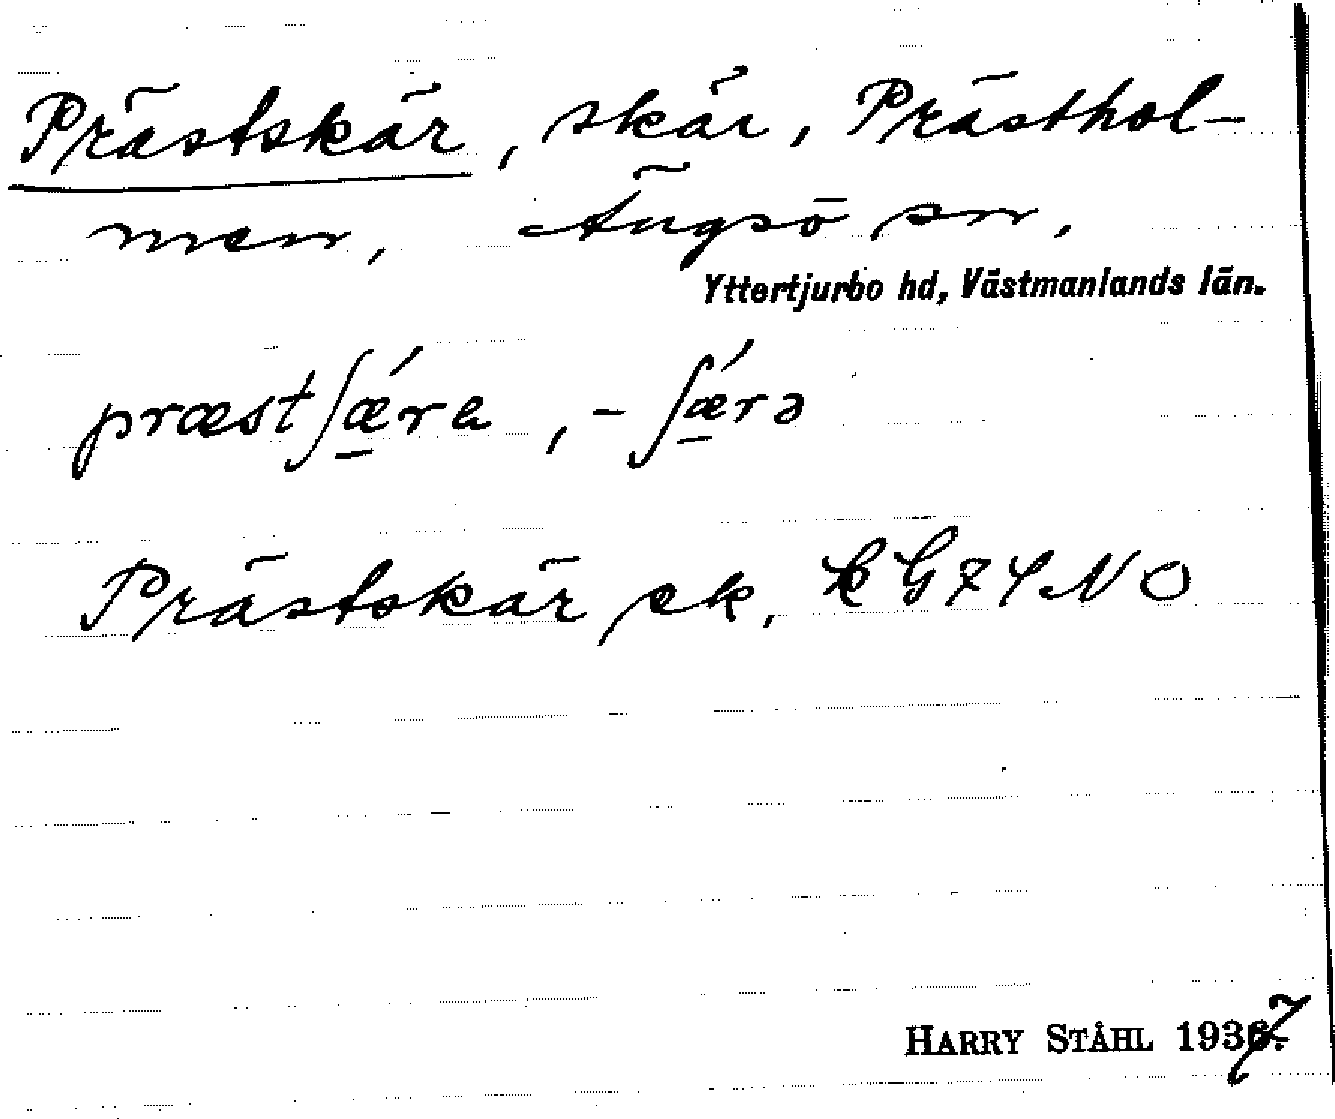 Prästskär, skär, Prästhol-
men, Ängsö sn,
Yttertjurbo hd, Västmanlands län.
præstʃǽra, -ʃǽrə
Prästskär ek,
HARRY STÅHL 1937